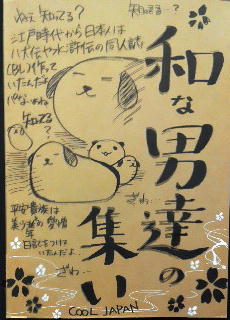 ねぇ 知ってる?
江戸時代から日本人は
八犬伝や水滸伝の同人誌
(BL)作って
いたんだよ
知ってる…?
知ってる
?
平安貴族は
美少年の
日記をつけて
いたんだよ…
ざわ…
ざわ…
和な男達の
集い
COOL JAPAN